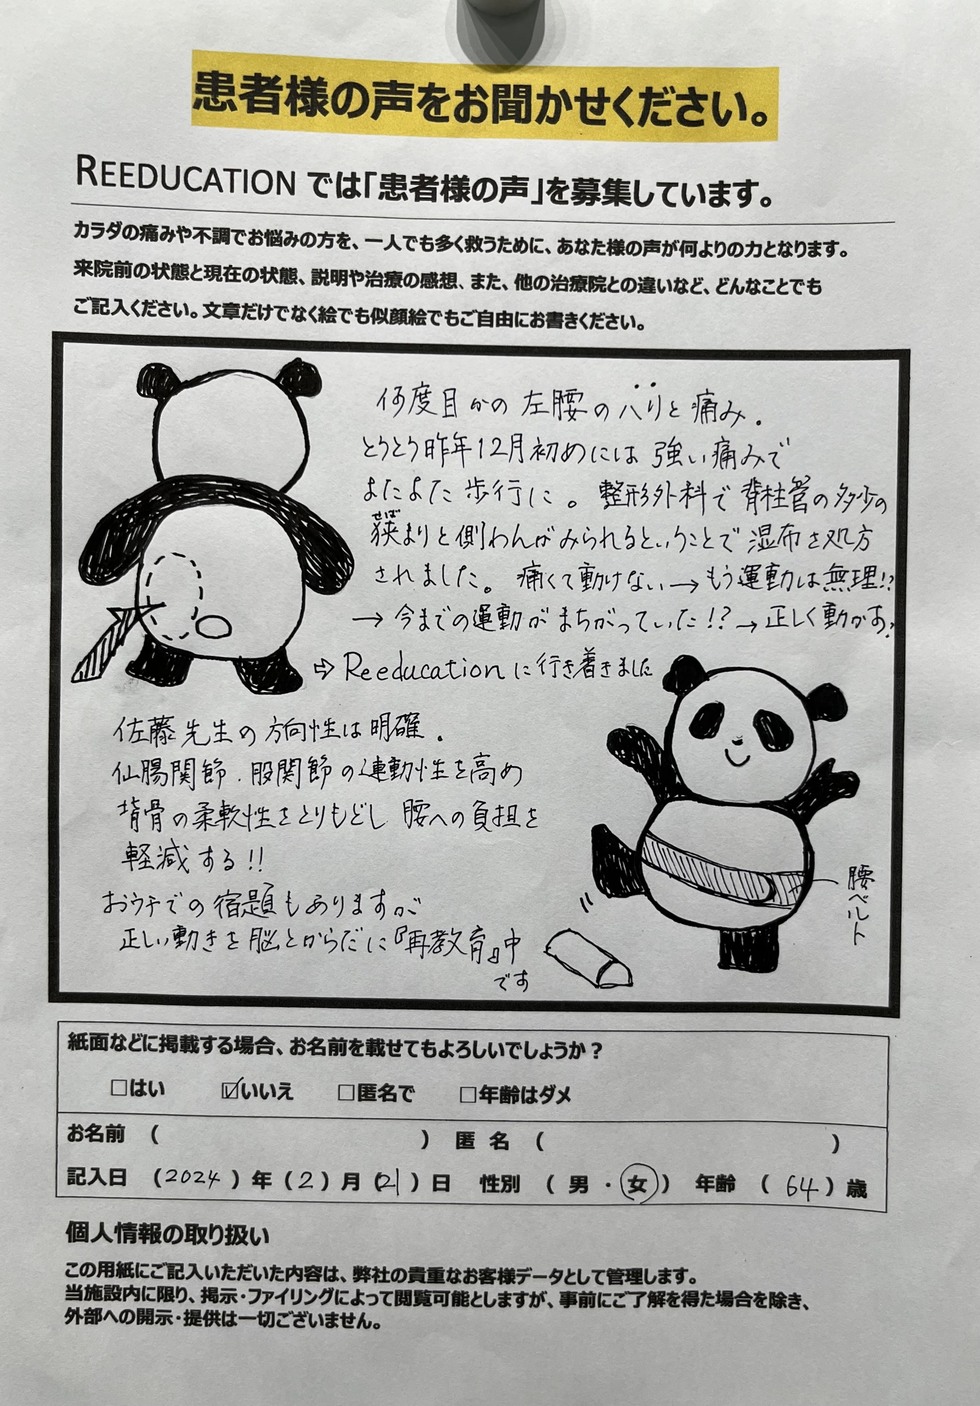 患者様の声をお聞かせください。
REEDUCATION では「患者様の声」を募集しています。
カラダの痛みや不調でお悩みの方を、一人でも多く救うために、あなた様の声が何よりの力となります。
来院前の状態と現在の状態、説明や治療の感想、また、他の治療院との違いなど、どんなことでも
ご記入ください。文章だけでなく絵でも似顔絵でもご自由にお書きください。
何度目かの左腰のハリと痛み.
とうとう昨年12月初めには強い痛みで
よたよた歩行に。整形外科で脊柱管の多少の
狭(せば)まりと側わんがみられるということで湿布を処方
されました。痛くて動けない→もう運動は無理!?
→今までの運動がまちがっていた!?→正しく動かす?
⇨ Reeducationに行き着きました
佐藤先生の方向性は明確.
仙腸関節.股関節の連動性を高め
背骨の柔軟性をとりもどし 腰への負担を
軽減する!!
おウチでの宿題もありますが
正しい動きを脳とからだに『再教育』中
です
腰ベルト
紙面などに掲載する場合、お名前を載せてもよろしいでしょうか？
□はい ☑いいえ □匿名で □年齢はダメ
お名前 （ ） 匿 名 （ ）
記入日 （2024）年（2）月（21）日 性別 （ 男 ・ 女 ） 年齢 （ 64 ）歳
個人情報の取り扱い
この用紙にご記入いただいた内容は、弊社の貴重なお客様データとして管理します。
当施設内に限り、掲示・ファイリングによって閲覧可能としますが、事前にご了解を得た場合を除き、
外部への開示・提供は一切ございません。